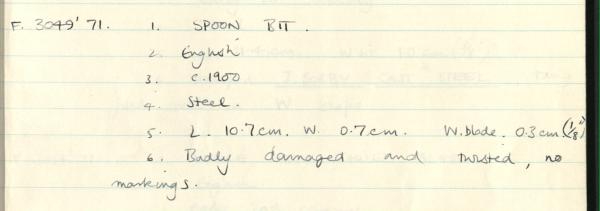 F. 3049' 71. 1. SPOON BIT.
2. English
3. c.1900
4. Steel.
5. L. 10.7cm. W. 0.7cm. W. blade. 0.3cm (1/8")
6. Badly damaged and twisted, no
markings.